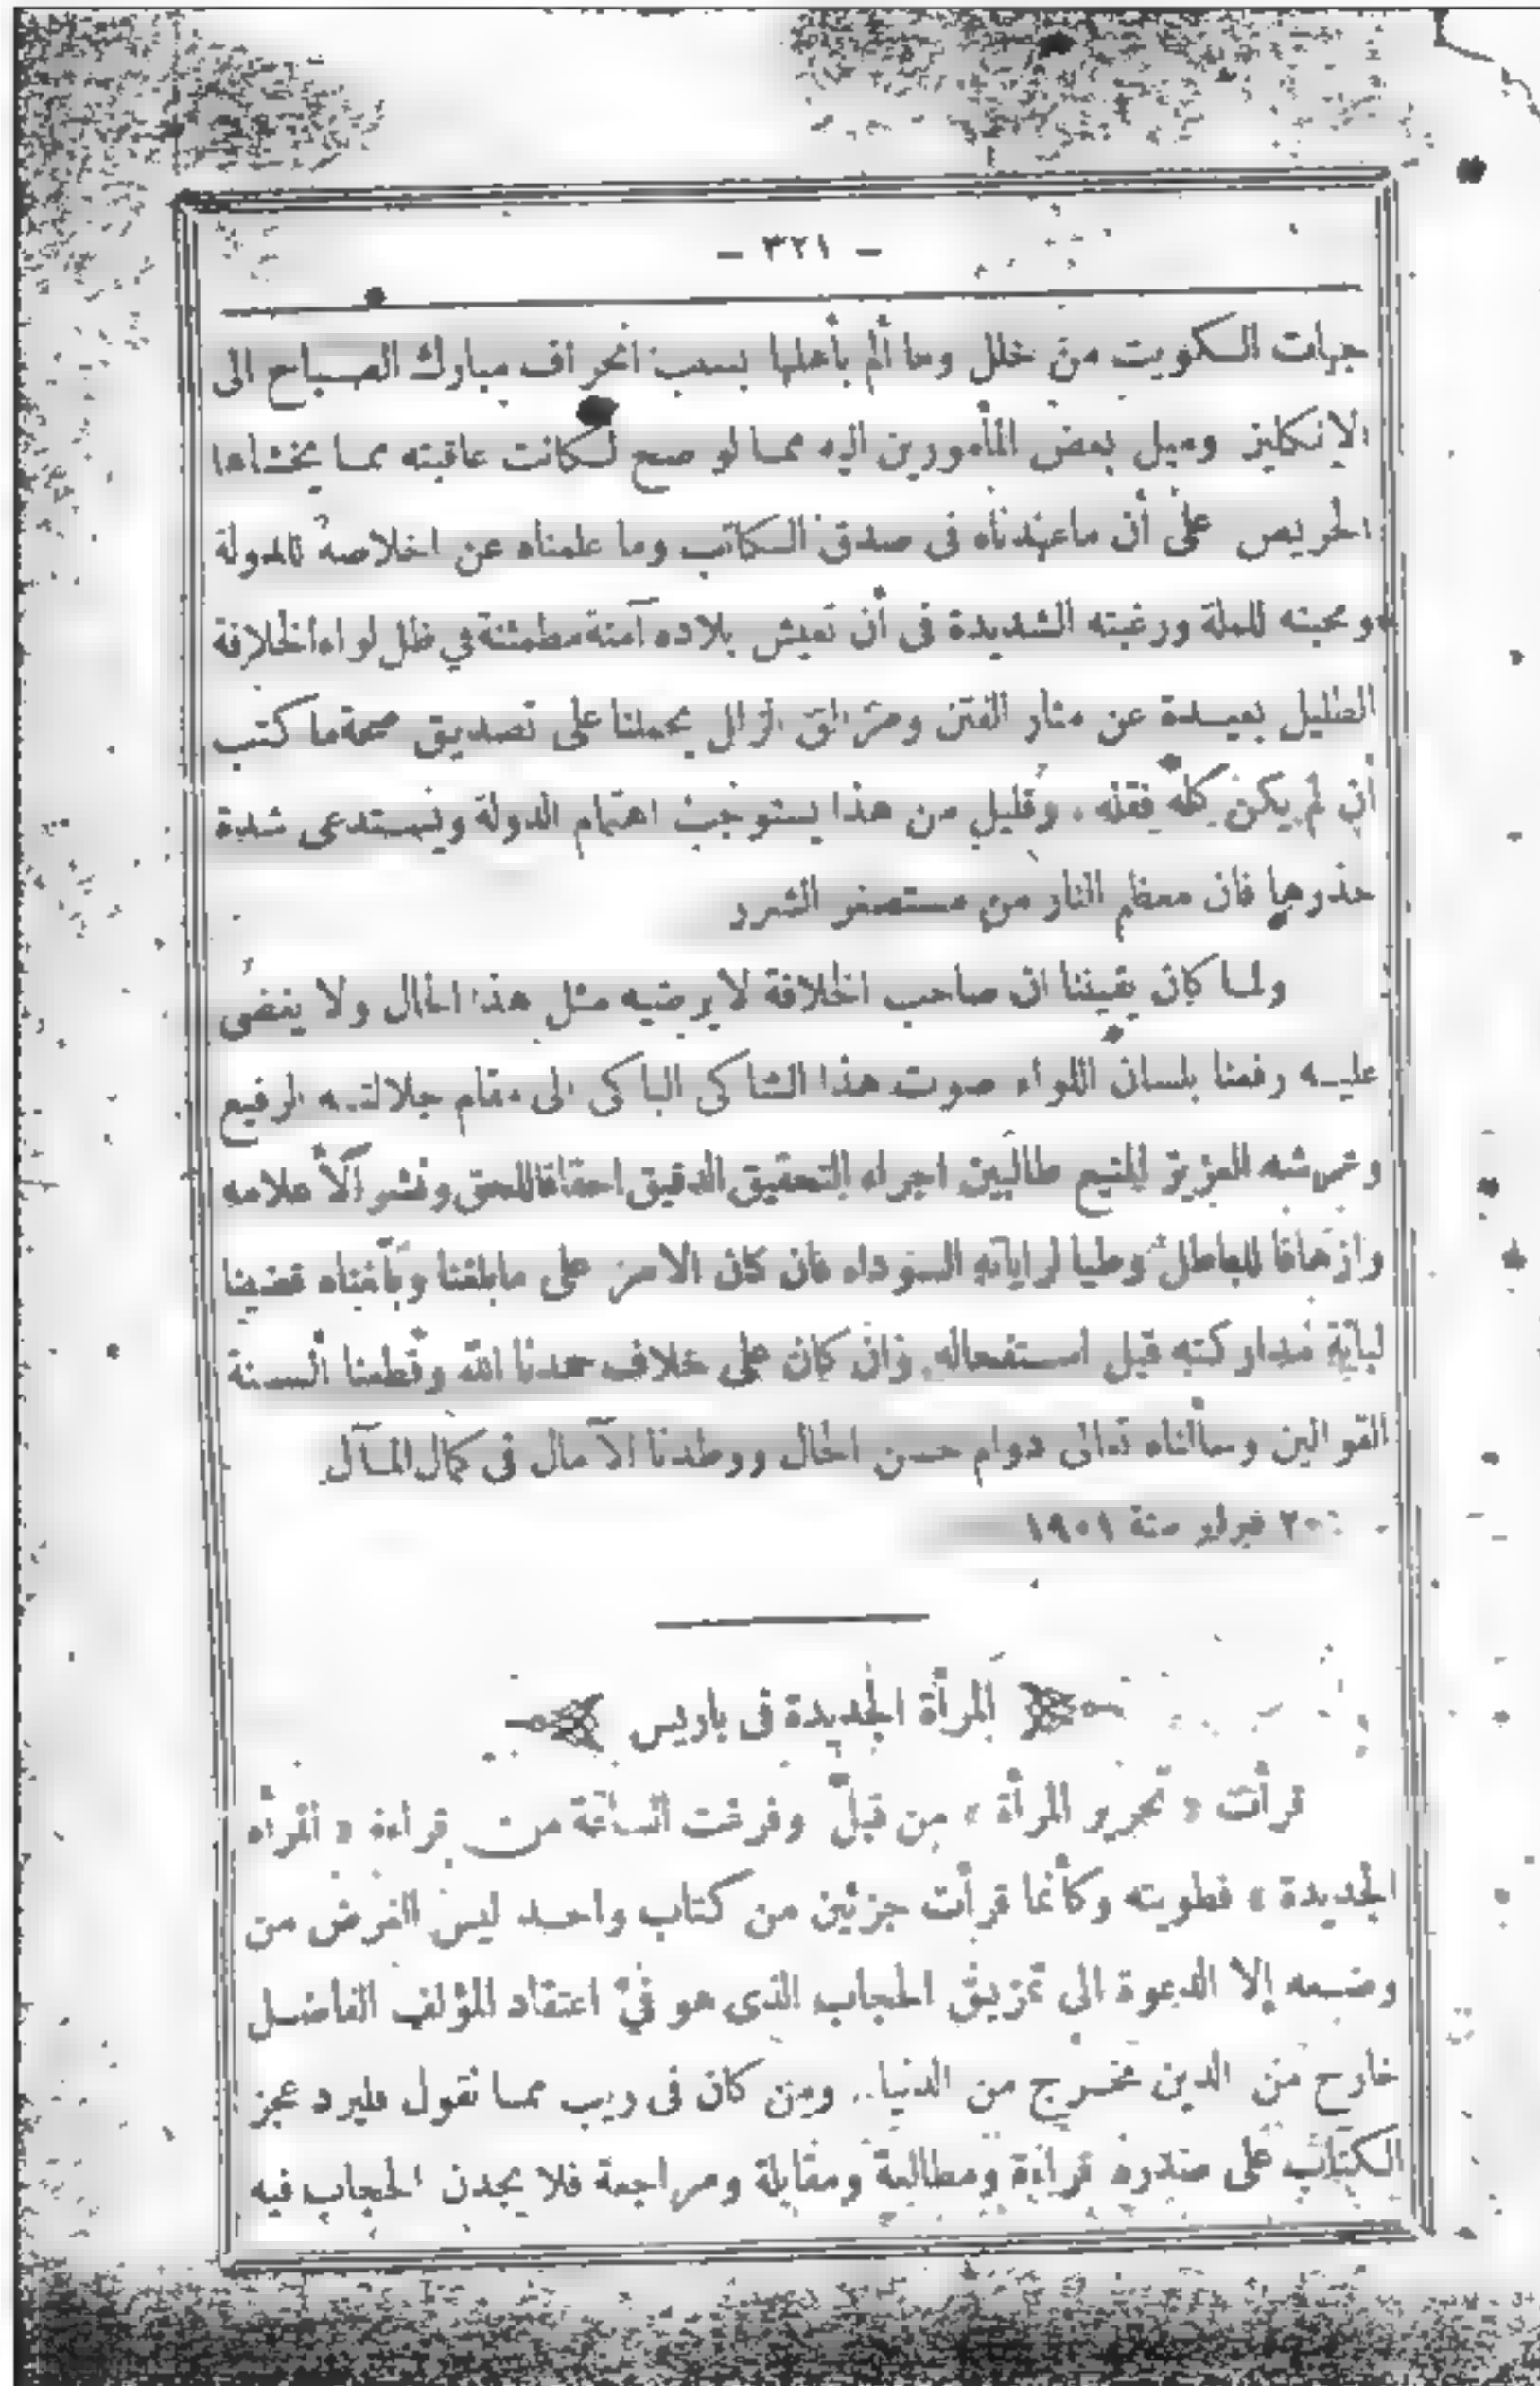 — ٣٢١ —
جهات الكويت من خلل وما ألم بأهلها بسبب انحراف مبارك الصباح الى
الانكليز وميل بعض المأمورين اليه مما لو صح لكانت عاقبته مما يخشاها
الحريص على أن ماعهدناه فى صدق الكاتب وما علمناه عن اخلاصه للدولة
ومحبته للملة ورغبته الشديدة فى أن تعيش بلاده آمنة مطمئنة في ظل لواء الخلافة
الظليل بعيدة عن مثار الفتن ومزالق الزلل يحملنا على تصديق صحة ما كتب
ان لم يكن كله فقله . وقليل من هذا يستوجب اهتمام الدولة ويستدعى شدة
حذرها فان معظم النار من مستصغر الشرر
ولما كان يقيننا ان صاحب الخلافة لا يرضيه مثل هذا الحال ولا يغضى
عليه رفعنا بلسان اللواء صوت هذا الشاكى الباكى الى مقام جلالته الرفيع
وعرشه العزيز المنيع طالبين اجراء التحقيق الدقيق احقاقا للحق ونشرا لأعلامه
وازهاقا للباطل وطيا لراياته السوداء فان كان الامر على مابلغنا وبلغناه قضينا
لبانة مداركته قبل استفحاله وان كان على خلاف حمدنا الله وقطعنا السنة
القوالين وسألناه تعالى دوام حسن الحال ووطدنا الآمال فى كمال المآل
٢٠ فبراير سنة ١٩٠١
المرأة الجديدة فى باريس
قرأت « تحرير المرأة » من قبل وفرغت الساعة من قراءة « المرأه
الجديدة » فطويته وكأنما قرأت جزئين من كتاب واحد ليس الغرض من
وضعه إلا الدعوة الى تمزيق الحجاب الذى هو في اعتقاد المؤلف الفاضل
خارج من الدين مخرج من الدنيا.. ومن كان فى ريب مما نقول فليرد عجز
الكتاب على صدره قراءة ومطالعة ومقابلة ومراجعة فلا يجدن الحجاب فيه